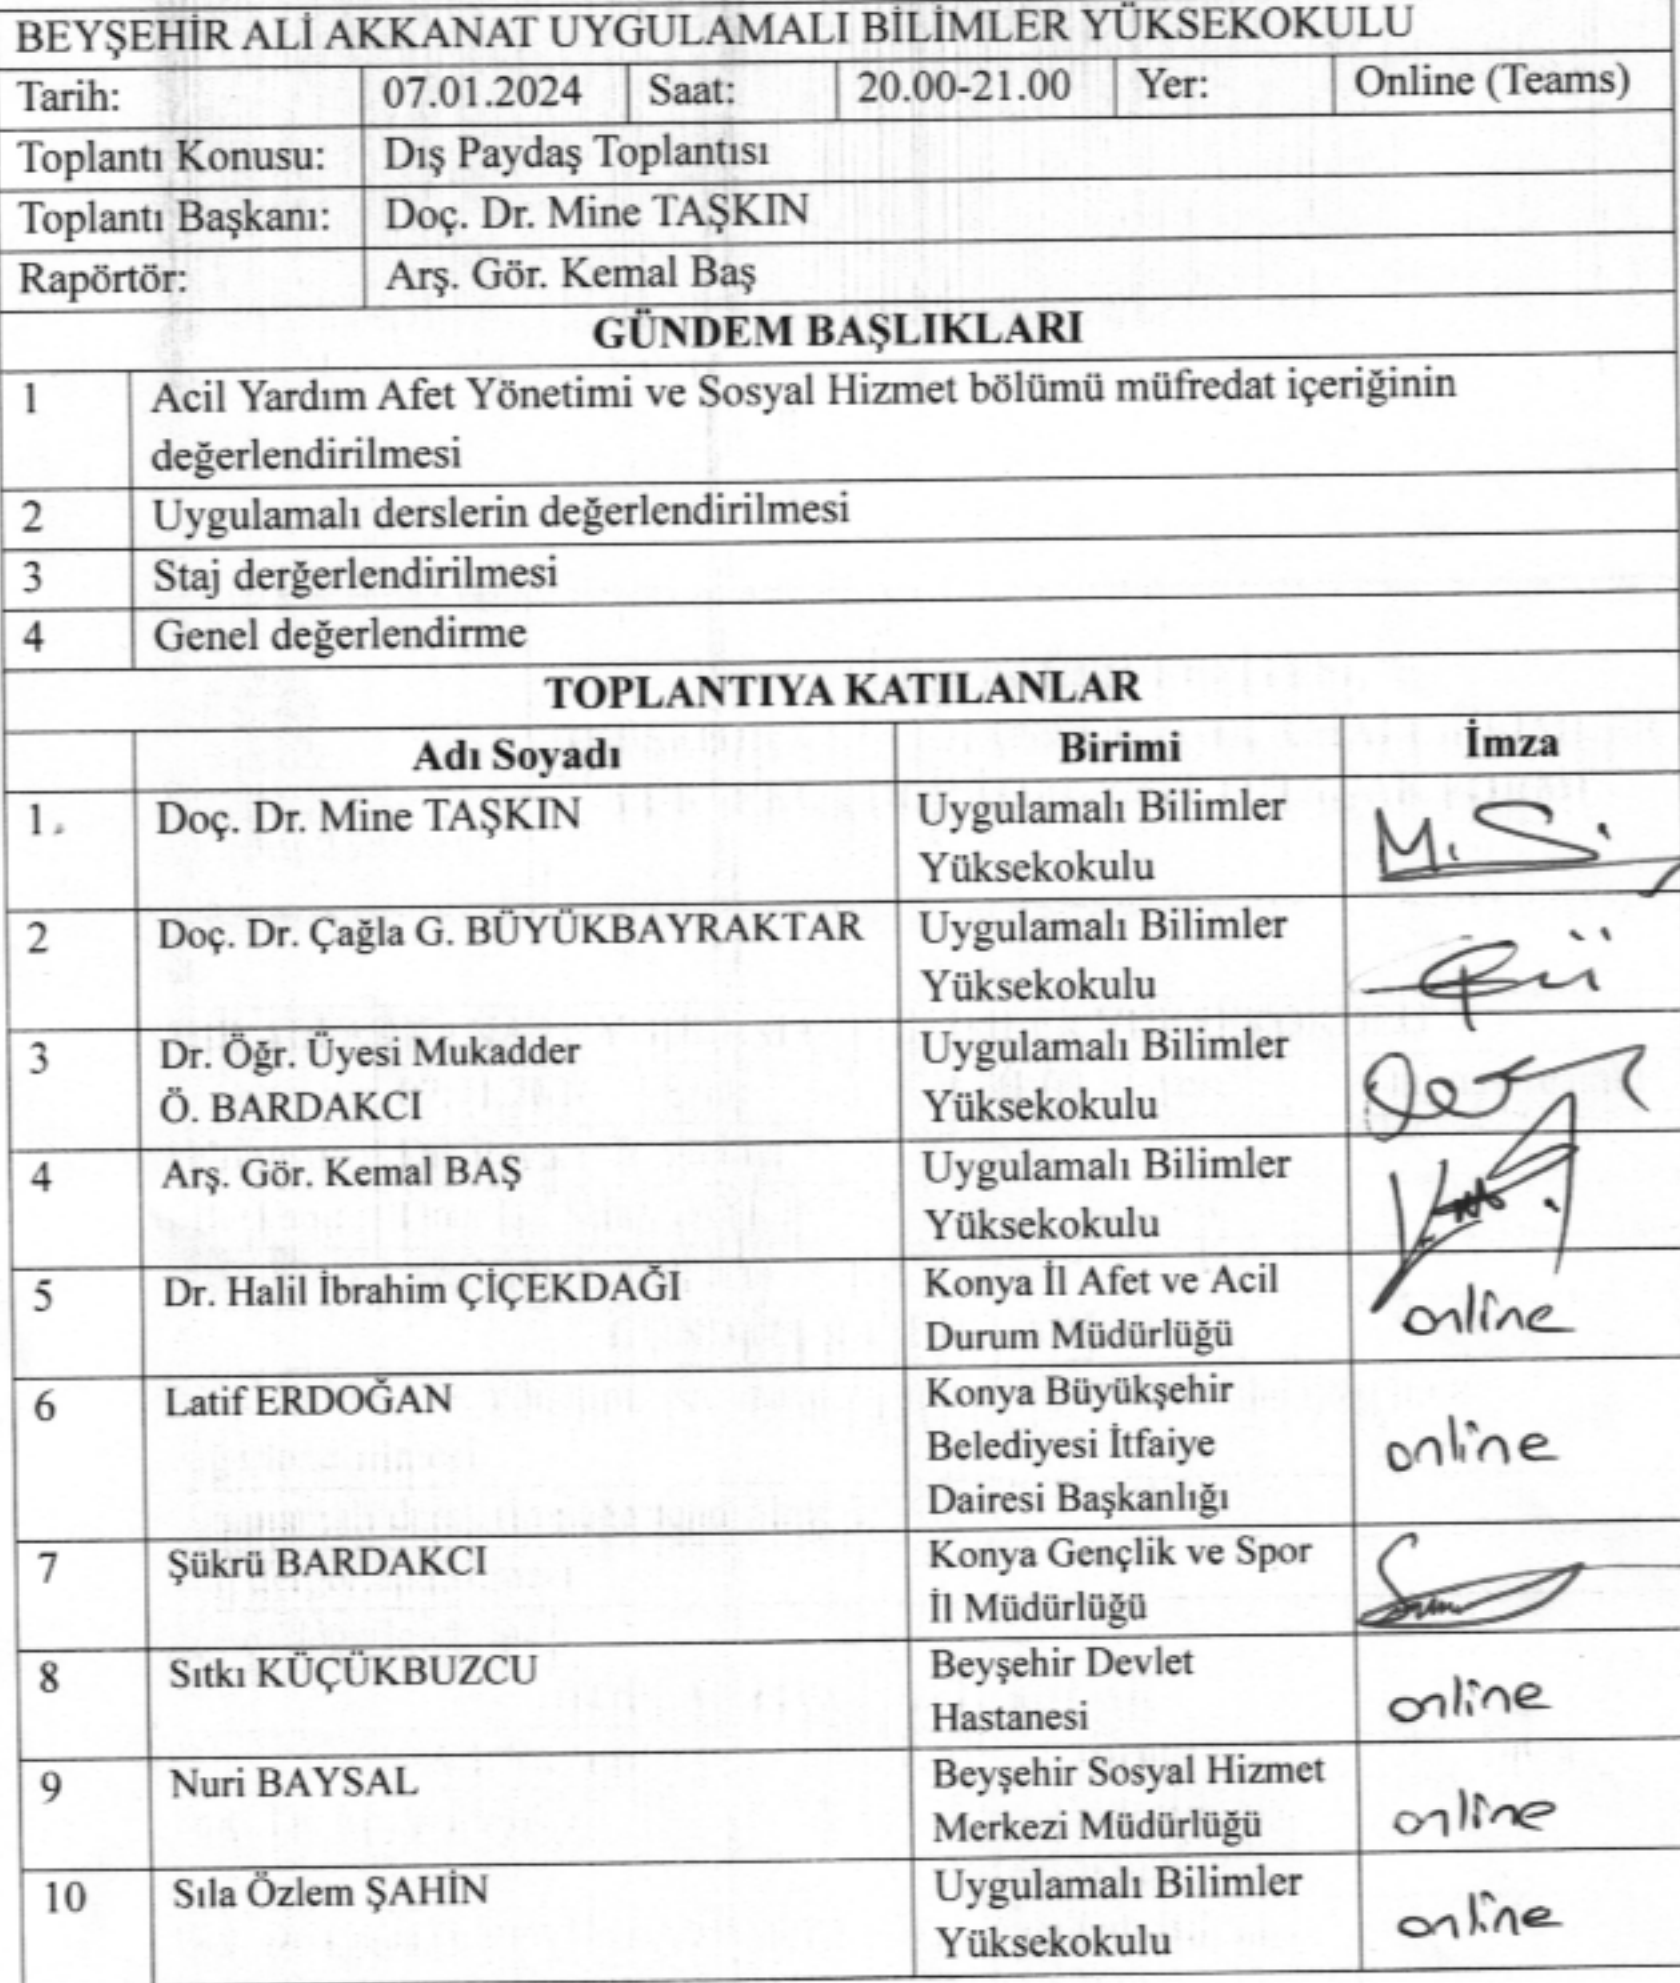 BEYŞEHİR ALİ AKKANAT UYGULAMALI BİLİMLER YÜKSEKOKULU
Tarih: 07.01.2024 Saat: 20.00-21.00 Yer: Online (Teams)
Toplantı Konusu: Dış Paydaş Toplantısı
Toplantı Başkanı: Doç. Dr. Mine TAŞKIN
Rapörtör: Arş. Gör. Kemal Baş
GÜNDEM BAŞLIKLARI
1 Acil Yardım Afet Yönetimi ve Sosyal Hizmet bölümü müfredat içeriğinin
değerlendirilmesi
2 Uygulamalı derslerin değerlendirilmesi
3 Staj derğerlendirilmesi
4 Genel değerlendirme
TOPLANTIYA KATILANLAR
Adı Soyadı Birimi İmza
1. Doç. Dr. Mine TAŞKIN Uygulamalı Bilimler
Yüksekokulu
2 Doç. Dr. Çağla G. BÜYÜKBAYRAKTAR Uygulamalı Bilimler
Yüksekokulu
3 Dr. Öğr. Üyesi Mukadder Uygulamalı Bilimler
Ö. BARDAKCI Yüksekokulu
4 Arş. Gör. Kemal BAŞ Uygulamalı Bilimler
Yüksekokulu
5 Dr. Halil İbrahim ÇİÇEKDAĞI Konya İl Afet ve Acil
Durum Müdürlüğü online
6 Latif ERDOĞAN Konya Büyükşehir
Belediyesi İtfaiye online
Dairesi Başkanlığı
7 Şükrü BARDAKCI Konya Gençlik ve Spor
İl Müdürlüğü
8 Sıtkı KÜÇÜKBUZCU Beyşehir Devlet
Hastanesi online
9 Nuri BAYSAL Beyşehir Sosyal Hizmet
Merkezi Müdürlüğü online
10 Sıla Özlem ŞAHİN Uygulamalı Bilimler
Yüksekokulu online